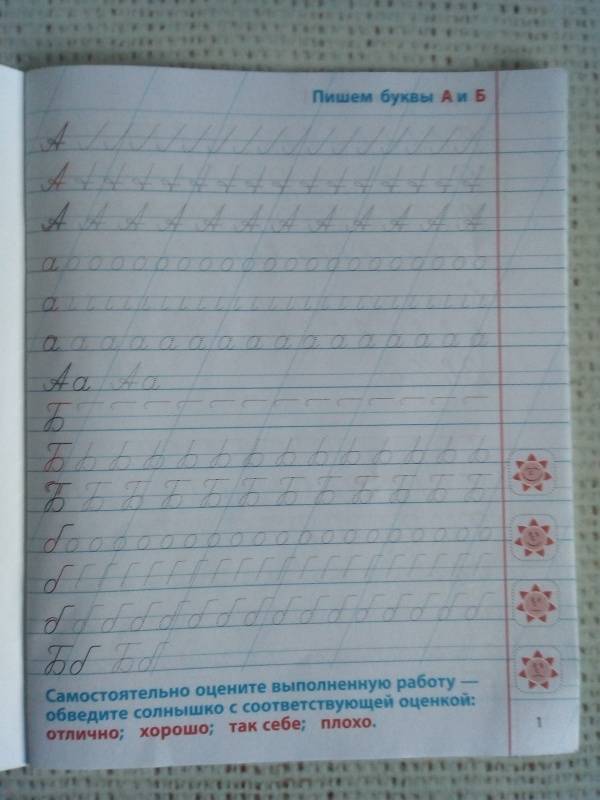 Пишем буквы А и Б
А
А
А А А А А А А А А А А А
а
а
а а а а а а а а а а а а а а а а
Аа Аа
Б
Б
Б Б Б Б Б Б Б Б Б Б Б Б
б
б
б б б б б б б б б б б б б б б б
Бб Бб
Самостоятельно оцените выполненную работу —
обведите солнышко с соответствующей оценкой:
отлично; хорошо; так себе; плохо.
1